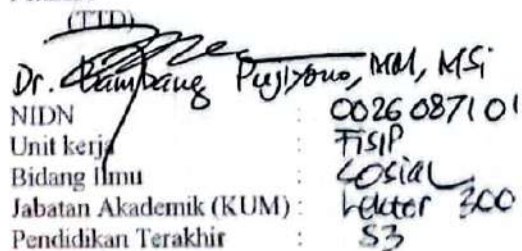 (TTD)
Dr. Bambang Pujiyono, MM, MSi
NIDN : 0026087101
Unit kerja : FISIP
Bidang Ilmu : Sosial
Jabatan Akademik (KUM) : Lektor 300
Pendidikan Terakhir : S3